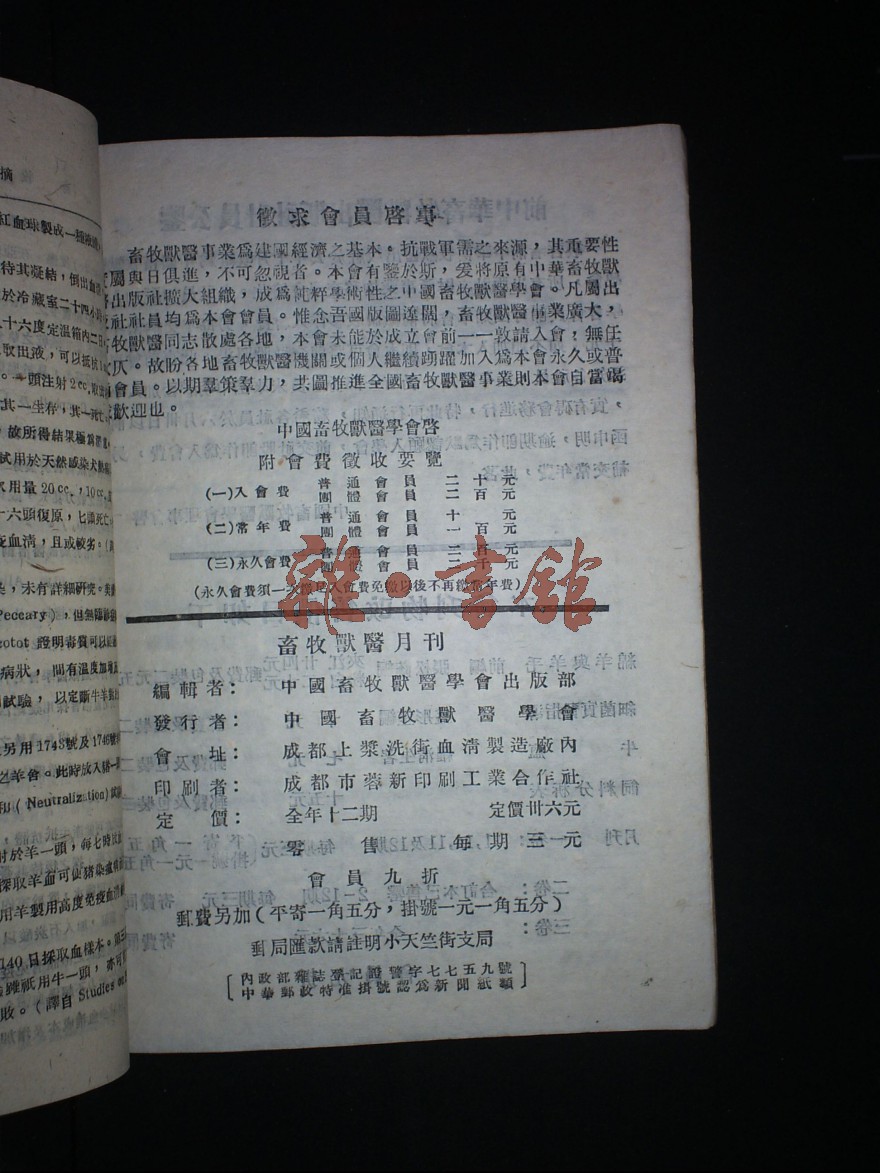 摘
徵求會員啓事
畜牧獸醫事業爲建國經濟之基本。抗戰軍需之來源，其重要性
屬與日俱進，不可忽視者。本會有鑒於斯，爰將原有中華畜牧獸
醫出版社擴大組織，成爲純粹學術性之中國畜牧獸醫學會。凡屬出
社社員均爲本會會員。惟念吾國版圖遼闊，畜牧獸醫事業廣大，
牧獸醫同志散處各地，本會未能於成立會前一一敦請入會，無任
仄。故盼各地畜牧獸醫機關或個人繼續踴躍加入爲本會永久或普
會員。以期羣策羣力，共圖推進全國畜牧獸醫事業則本會自當竭
歡迎也。
中國畜牧獸醫學會啓
附會費徵收要覽
(一)入會費 普通會員 二十元
團體會員 二百元
(二)常年費 普通會員 十元
團體會員 一百元
(三)永久會費 普通會員 二百元
團體會員 二千元
(永久會費須一次繳足入會費免繳以後不再繳常年費)
畜牧獸醫月刊
編輯者： 中國畜牧獸醫學會出版部
發行者： 中國畜牧獸醫學會
會址： 成都上漿洗街血清製造廠內
印刷者： 成都市蓉新印刷工業合作社
定價： 全年十二期 定價卅六元
零售每期三元
會員九折
郵費另加(平寄一角五分，掛號一元一角五分)
郵局匯款請註明小天竺街支局
內政部雜誌登記證警字七七五九號
中華郵政特准掛號認爲新聞紙類
雜·書館
紅血球製成一
待其凝結，倒出血
於冷藏室二十四小
十六度定溫箱內二日
取出液，可以抵抗
。一頭注射2 cc.
其一生存，其一死
，故所得結果極
試用於天然感染犬
用量20 cc.，10 cc.
十六頭復原，七頭死亡
疫血清，且或較劣。
，未有詳細研究。
Peccary)，但無
otot 證明毒費可以
病狀，間有溫度加增
試驗，以定斷牛羊
另用1743號及1746號
之羊舍。此時放入豬一
和(Neutralization)
射於羊一頭，每七時
採取羊血可使豬染
用羊製用高度免疫血
140日採取血樣本。
雖祇用牛一頭，亦可
敗。(譯自 Studies on